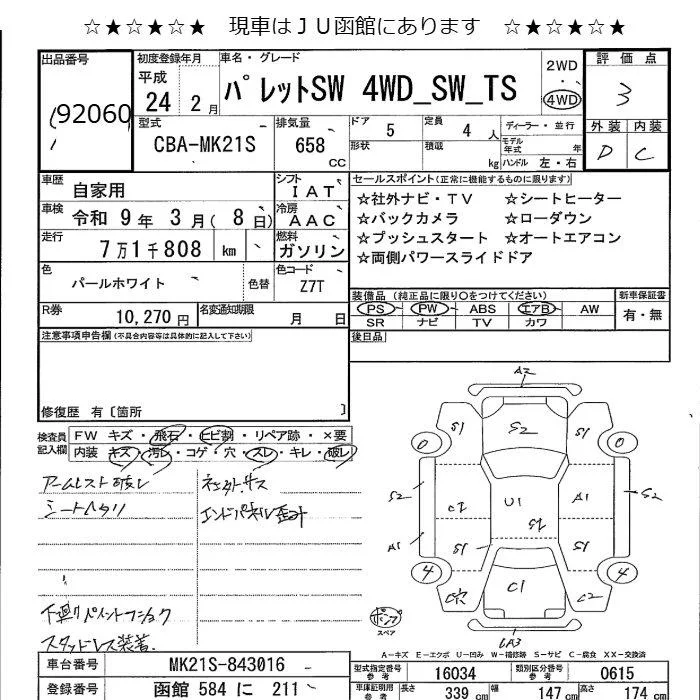 ☆★☆★☆★ 現車はＪＵ函館にあります ☆★☆★☆★
出品番号
92060
初度登録年月
平成
24 2 月
車名・グレード
パレットSW 4WD_SW_TS
2WD
・
4WD
評価点
3
外装 内装
D C
型式
CBA-MK21S
排気量
658
CC
ドア
5
定員
4 人
形状
積載
kg
ディーラー・並行
モデル年式 年
ハンドル 左・右
車歴
自家用
シフト
IAT
車検
令和 9 年 3 月( 8 日)
冷房
AAC
走行
7 万 1 千 808 km
燃料
ガソリン
色
パールホワイト
色替
色コード
Z7T
R券
10,270 円
名変通知期限
月 日
セールスポイント(正常に機能するものに限ります)
☆社外ナビ・TV ☆シートヒーター
☆バックカメラ ☆ローダウン
☆プッシュスタート ☆オートエアコン
☆両側パワースライドドア
装備品 (純正品に限り○をつけてください)
PS PW ABS エアB AW
SR ナビ TV カワ
新車保証書
有・無
後日品
注意事項申告欄(不具合内容等は具体的に記入して下さい)
修復歴 有〔箇所 〕
検査員記入欄
FW キズ・飛石・ヒビ割・リペア跡・×要
内装 キズ・汚レ・コゲ・穴・スレ・キレ・破レ
アームレスト破レ
シートヘタリ
下廻りペイントフショク
スタッドレス装着
社外サス
エンドパネル歪ミ
A2
S1 S2 S1
0 0
S2 S2
C2 U1 A1
A1 S1 S2 S1
4 4
C1 C2
スペア
A-キズ E-エクボ U-凹み W-補修跡 S-サビ C-腐食 XX-交換済
車台番号
MK21S-843016
登録番号
函館 584 に 211
型式指定番号
参考
16034
類別区分番号
参考
0615
車庫証明用
参考
長さ 339 cm
幅 147 cm
高さ 174 cm